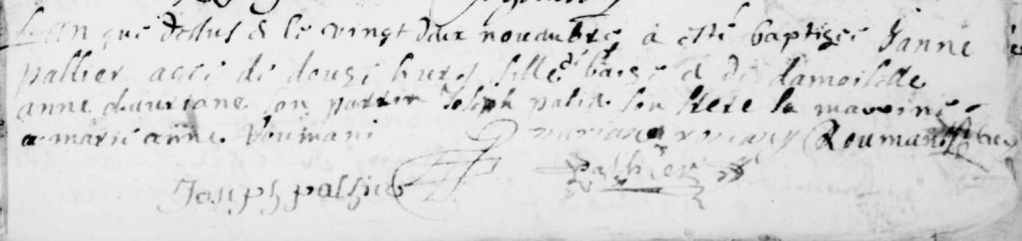 L'an que dessus & le vingt deux novambre a esté baptizée Janne
pallier agée de douze hures fille de & de damoiselle
anne son parrin Joseph palier son frere la marrine
a marie anne Roumani Roumans
Joseph pallier pallier